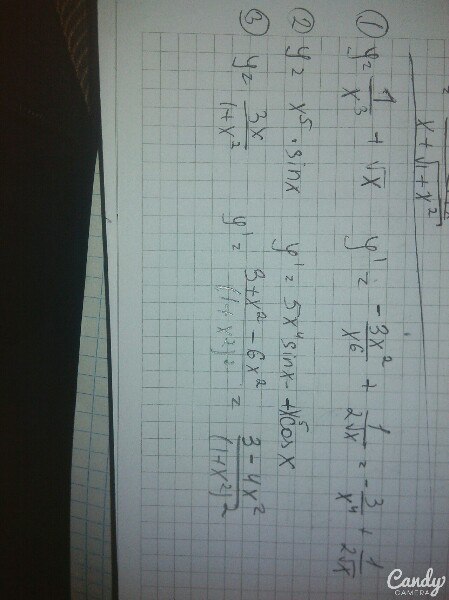 x + √1 + x²
① y = 1/x³ + √x y' = -3x²/x⁶ + 1/2√x = -3/x⁴ + 1/2√x
② y = x⁵ · sinx y' = 5x⁴ sinx + x⁵cosx
③ y = 3x/1+x² y' = 3+x² - 6x²/(1+x²)² = 3-4x²/(1+x²)²
Candy
CAMERA